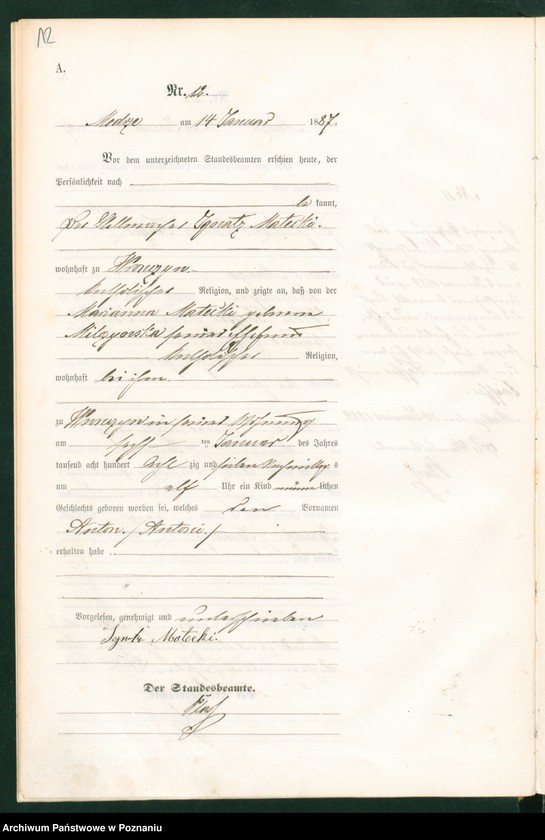 12
A.
Nr. 12.
Modze am 14 Januar 1887.
Vor dem unterzeichneten Standesbeamten erschien heute, der
Persönlichkeit nach
be kannt,
Der Ignatz Matecki.
wohnhaft zu Wronczyn
katholischer Religion, und zeigte an, daß von der
Marianna Matecki geborene
seiner Ehefrau
katholischer Religion,
wohnhaft bei ihm
zu Wronczyn in seiner Wohnung
am ten Januar des Jahres
tausend acht hundert acht zig und sieben Vormittags
um elf Uhr ein Kind männlichen
Geschlechts geboren worden sei, welches den Vornamen
Anton. /Antoni./
erhalten habe
Vorgelesen, genehmigt und unterschrieben
Matecki.
Der Standesbeamte.
Archiwum Państwowe w Poznaniu